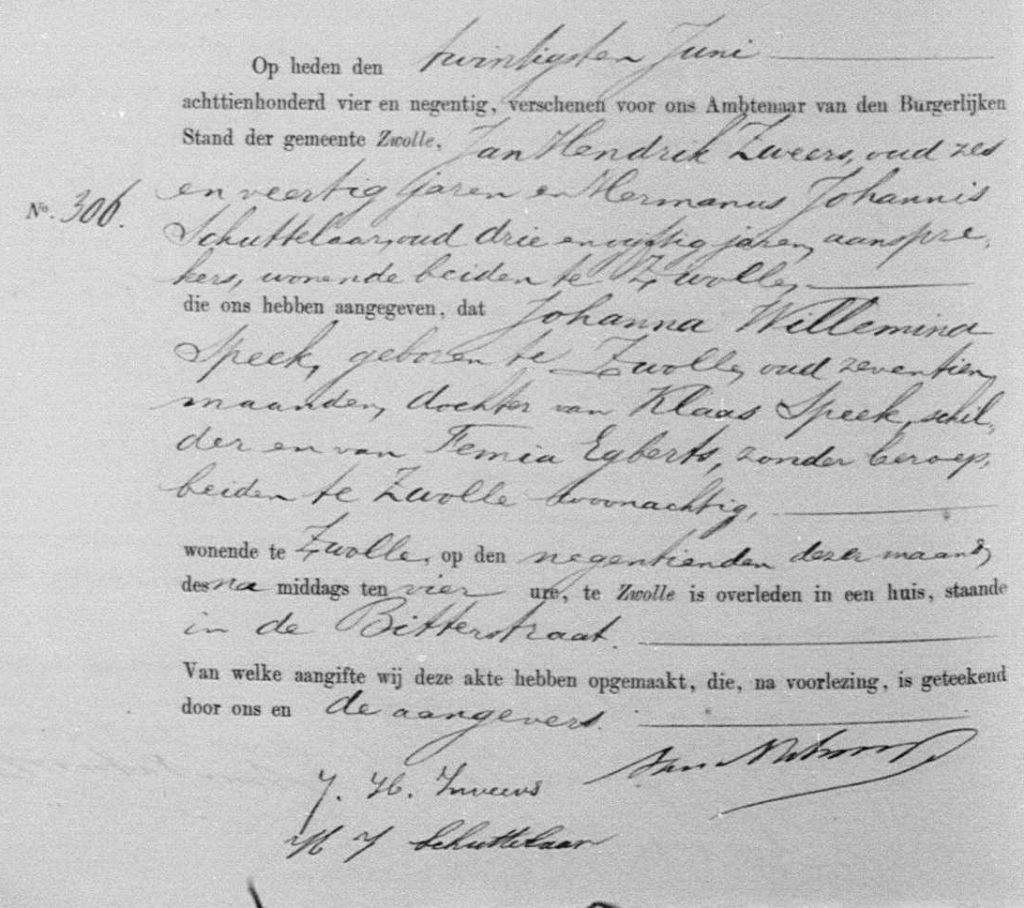 Op heden den twintigsten Juni
achttienhonderd vier en negentig, verschenen voor ons Ambtenaar van den Burgerlijken
Stand der gemeente Zwolle, Jan Hendrik Zweers, oud zes
No. 306. en veertig jaren en Hermanus Johannis
Schuttelaar, oud drie en vijftig jaren, aanspre-
kers, wonende beiden te Zwolle,
die ons hebben aangegeven, dat Johanna Willemina
Speek, geboren te Zwolle, oud zeventien
maanden, dochter van Klaas Speek, schil-
der en van Femia Egberts, zonder beroep,
beiden te Zwolle woonachtig,
wonende te Zwolle, op den negentienden dezer maand,
des na middags ten vier ure, te Zwolle is overleden in een huis, staande
in de Bitterstraat.
Van welke aangifte wij deze akte hebben opgemaakt, die, na voorlezing, is geteekend
door ons en de aangevers.
J. H. Zweers
H J Schuttelaar